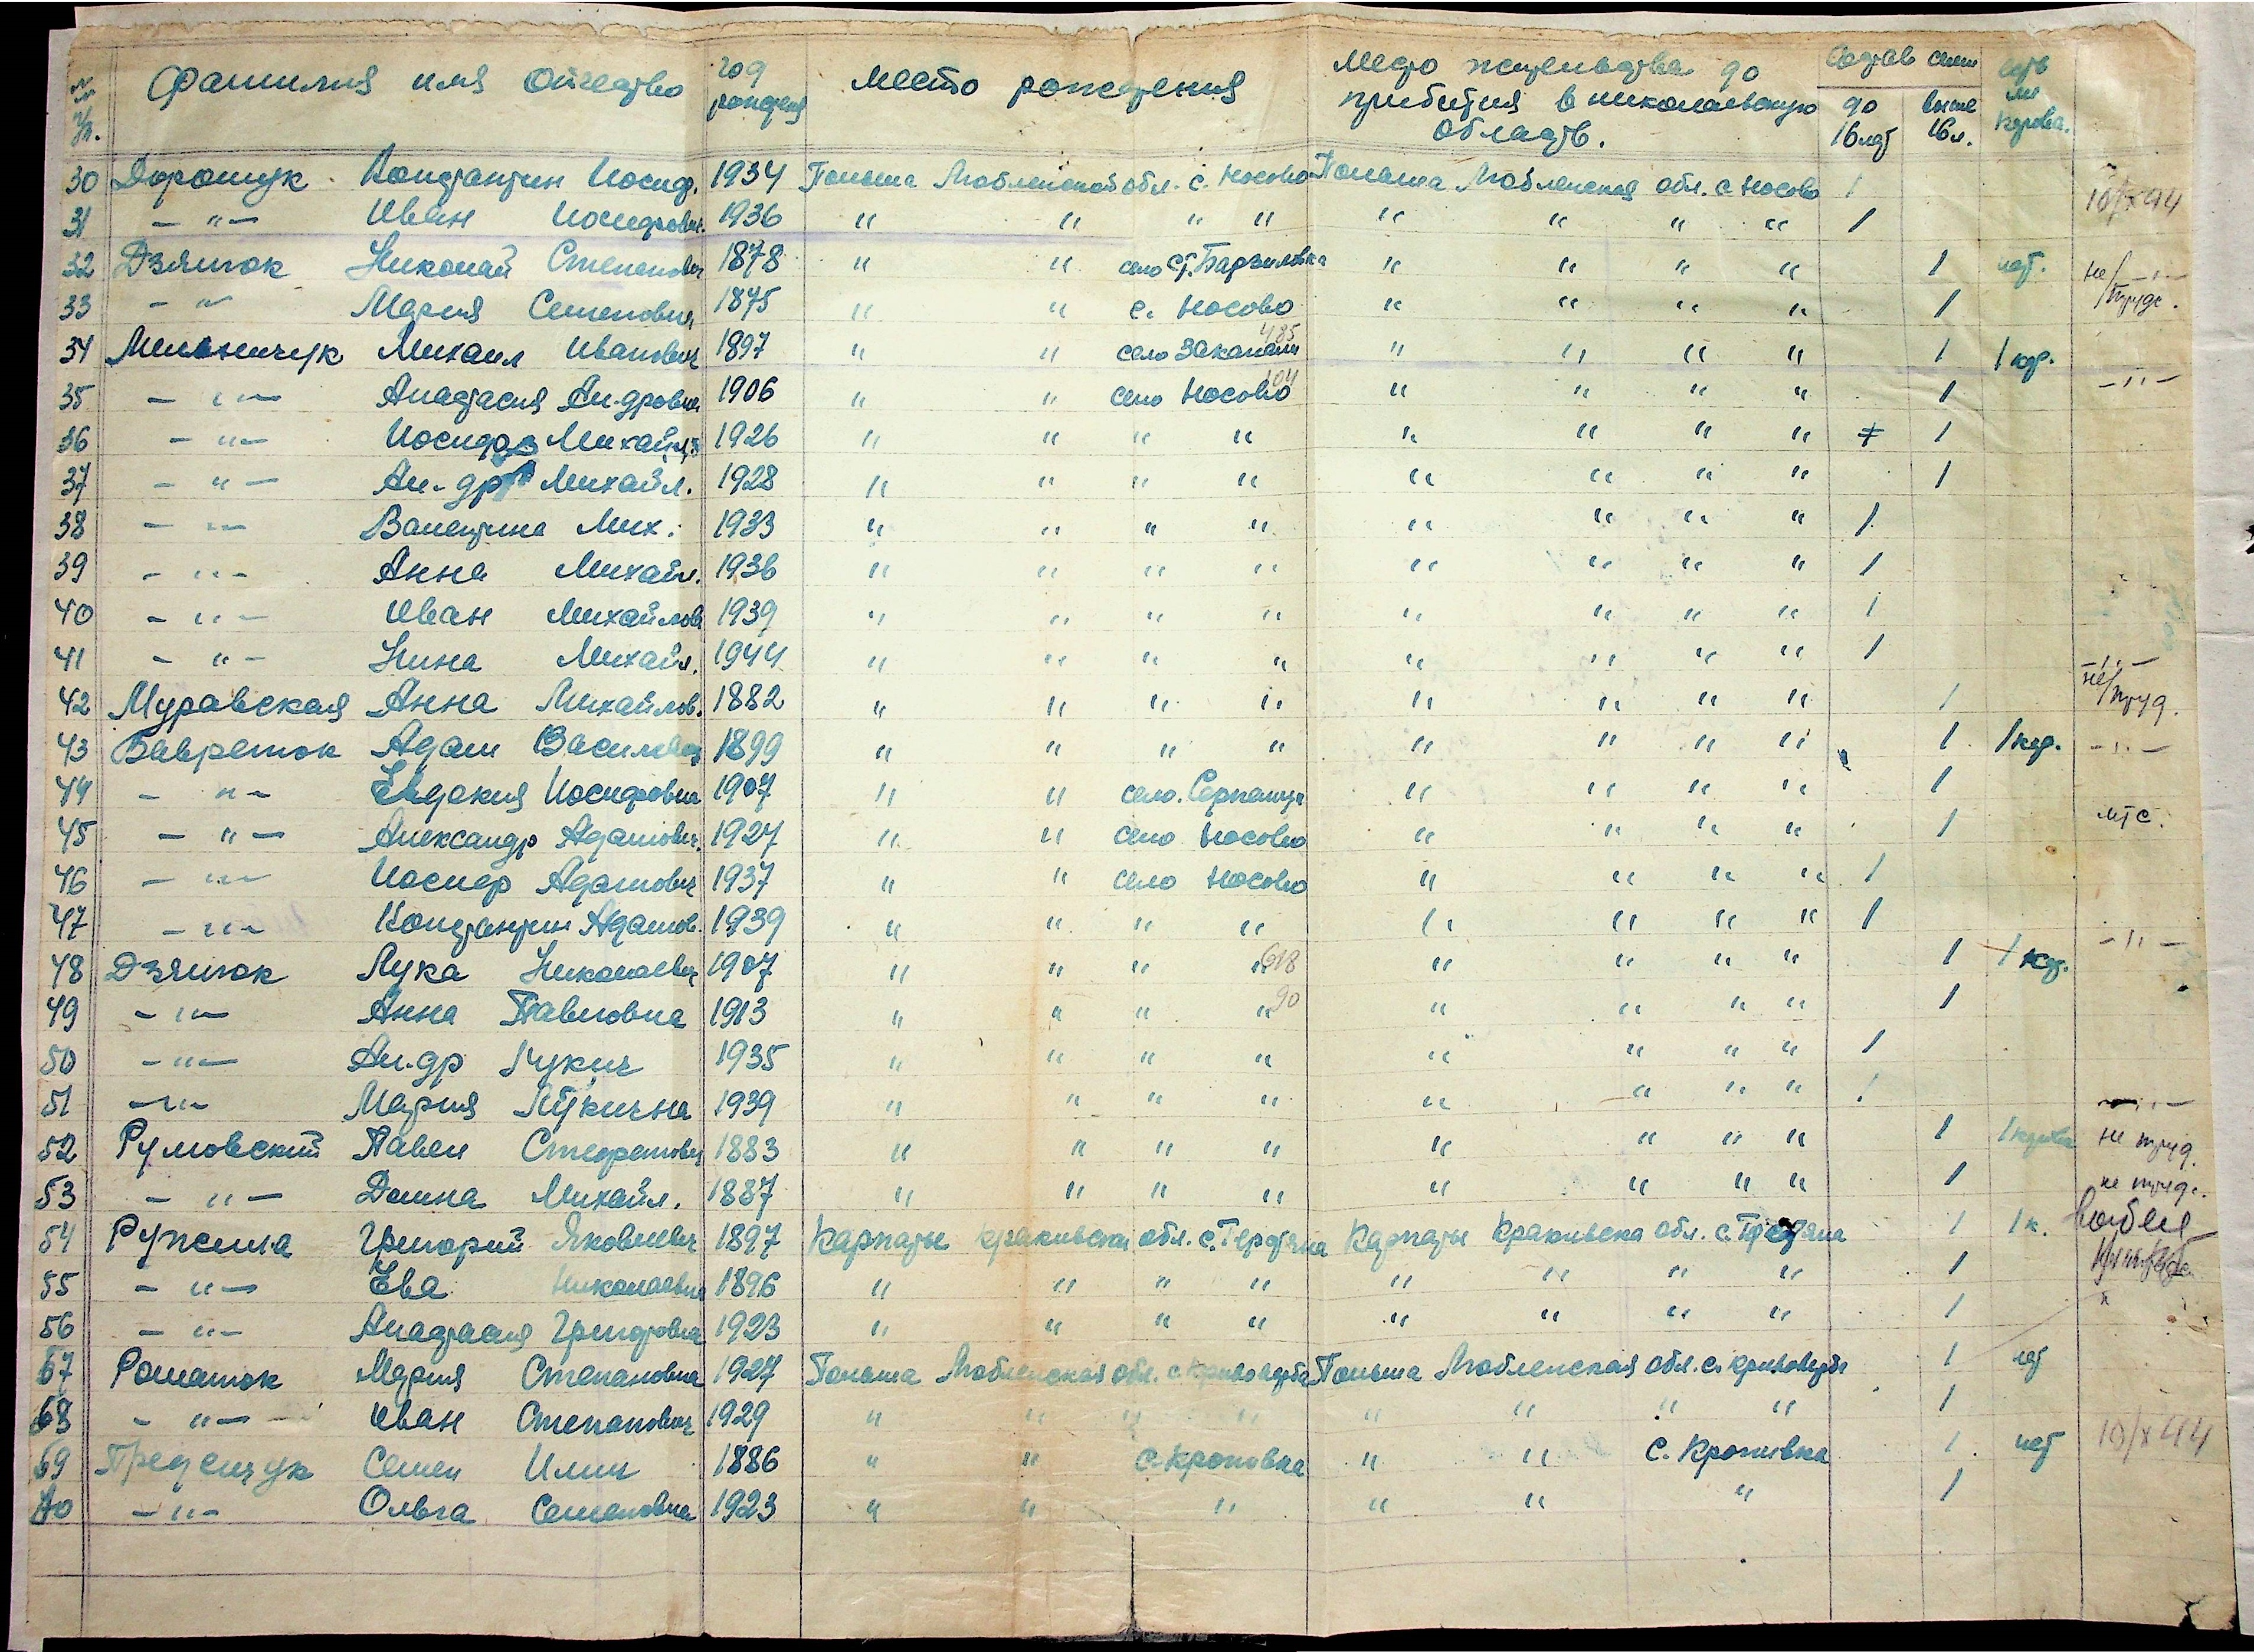 №№ п/п. Фамилия имя Отчество год рождения место рождения место жительства до прибытия в николаевскую область. Состав семи до 16 лет выше 16 л. есть ли корова.
30 Дорошук Константин Иосиф. 1934 Польша Любленской обл. с. Носово Польша Люблинская обл. с Носово 1 10/X 44
31 — " — Иван Иосифович. 1936 " " " " " " " " 1
32 Дзяток Николай Степанович 1878 " " село Ст. " " " " 1 нет. не/
33 — " Мария Семеновна 1875 " " с. Носово " " " " 1 /труд.
34 Мельничук Михаил Иванович 1897 " " село Закапали 485 " " " " 1 1 кор.
35 — " — Анастасия Ан.дровна 1906 " " село Носово 104 " " " " 1 — " —
36 — " — Иосиф Михайл. 1926 " " " " " " " " 1
37 — " — Ал-др Михайл. 1928 " " " " " " " " 1
38 — " — Валентина Мих. 1933 " " " " " " " " 1
39 — " — Анна Михайл. 1936 " " " " " " " " 1
40 — " — Иван Михайлов 1939 " " " " " " " " 1
41 — " — Нина Михайл. 1944 " " " " " " " " 1 — " —
42 Муравская Анна Михайлов. 1882 " " " " " " " " 1 не/труд.
43 Бавреток Адам Василевич 1899 " " " " " " " " 1 1 кор. — " —
44 — " — Евдокия Иосифовна 1907 " " село. " " " " 1
45 — " — Александр Адамович. 1927 " " село Носово " " " " 1 мтс.
46 — " — Иосиф Адамович 1937 " " село Носово " " " " 1
47 — " — Константин Адамов. 1939 " " " " " " " " 1
48 Дзяток Лука Николаевич 1907 " " " " 618 " " " " 1 1 кор. — " —
49 — " — Анна Павловна 1913 " " " " 90 " " " " 1
50 — " — Ал.др Лукич 1935 " " " " " " " " 1
51 — " — Мария Лукична 1939 " " " " " " " " 1 — " —
52 Румовский Павел Стефанович 1883 " " " " " " " " 1 1 корова не труд.
53 — " — Домна Михайл. 1887 " " " " " " " " 1 не труд.
54 Ружила Григорий Яковлевич 1897 Карпаты кракивской обл. с. Карпаты Кракивска обл. с. 1 1 к.
55 — " — Ева Николаевна 1896 " " " " " " " " 1
56 — " — Анастасия Григоровна 1923 " " " " " " " " 1 "
57 Романюк Мария Степановна 1927 Польша Люблинская обл. с. Кривоверба Польша Люблинская обл. с. кривоверба 1 нет
68 — " — Иван Степанович 1929 " " " " " " " " 1
69 Семен Илич 1886 " " с. Кроповка " " с. Кропивка 1 нет 10/X 44
70 — " — Ольга Семеновна 1923 " " " " " " 1